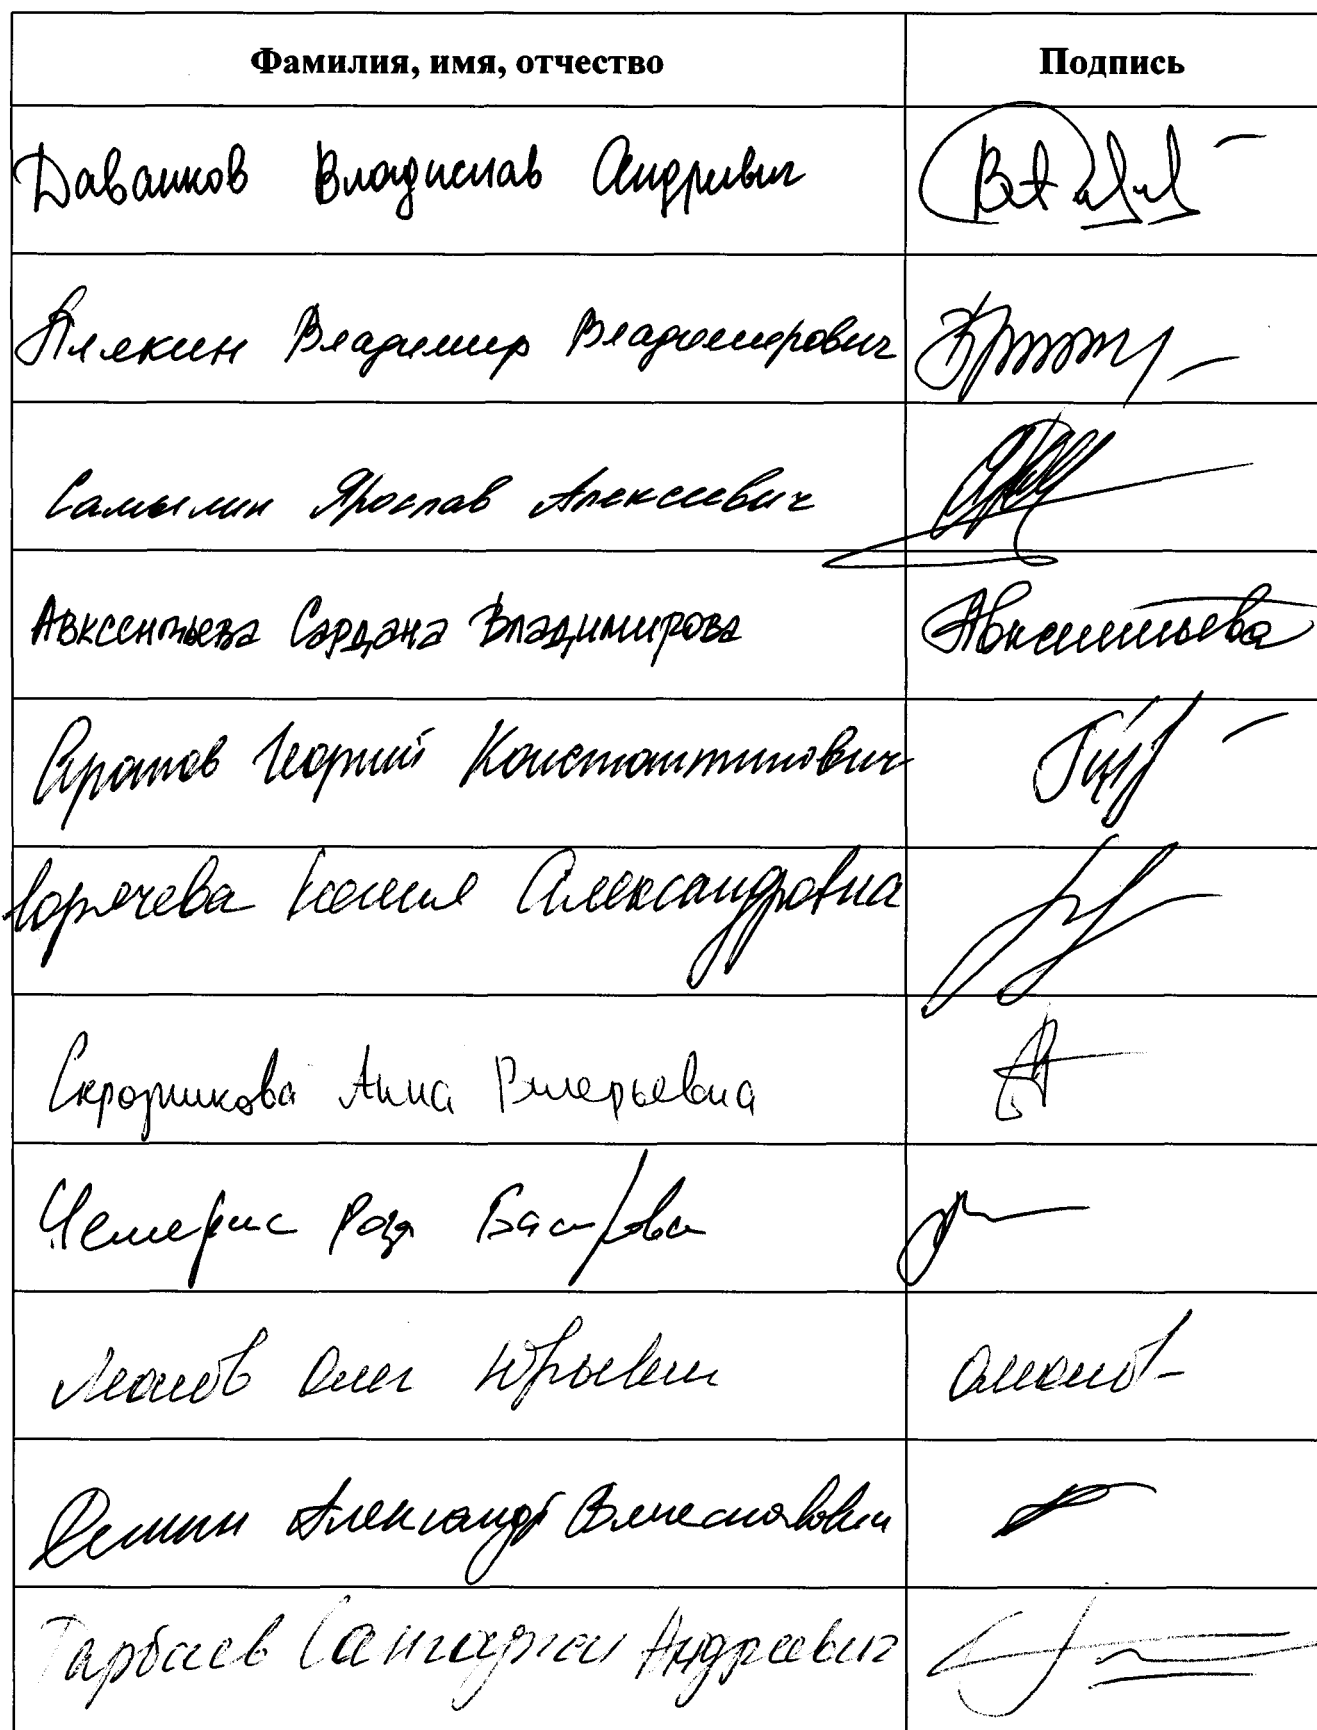 Фамилия, имя, отчество Подпись
Даванков Владислав Андреевич
Плякин Владимир Владимирович
Самылин Ярослав Алексеевич
Авксентьева Сардана Владимирова Авксентьева
Арапов Георгий Константинович
Горячева Ксения Александровна
Скрозникова Анна Валерьевна
Чемерис Роза Басировна
Леонов Олег Юрьевич
Демин Александр Вячеславович
Тарбаев Сангаджи Андреевич